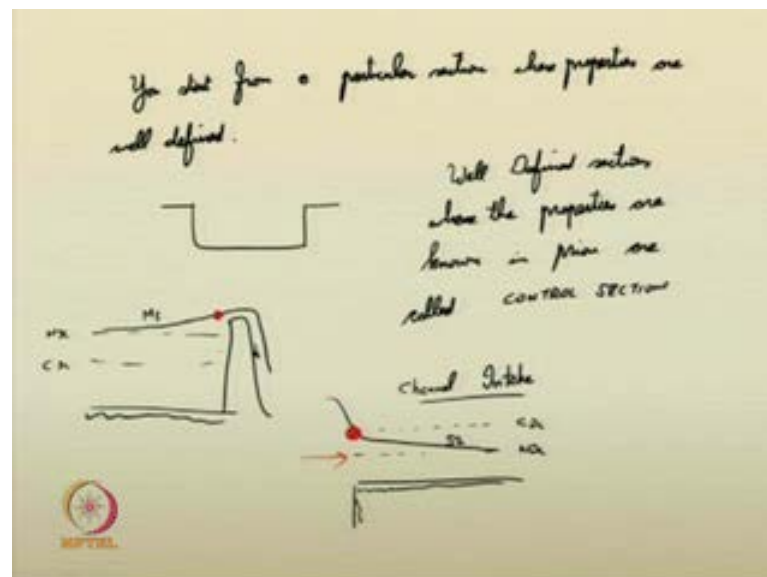 You start from a particular section whose properties are
well defined.
Well Defined sections
where the properties are
known in prior are
called CONTROL SECTION
M1
NDL
CDL
Channel Intake
CDL
S2
NDL
NPTEL